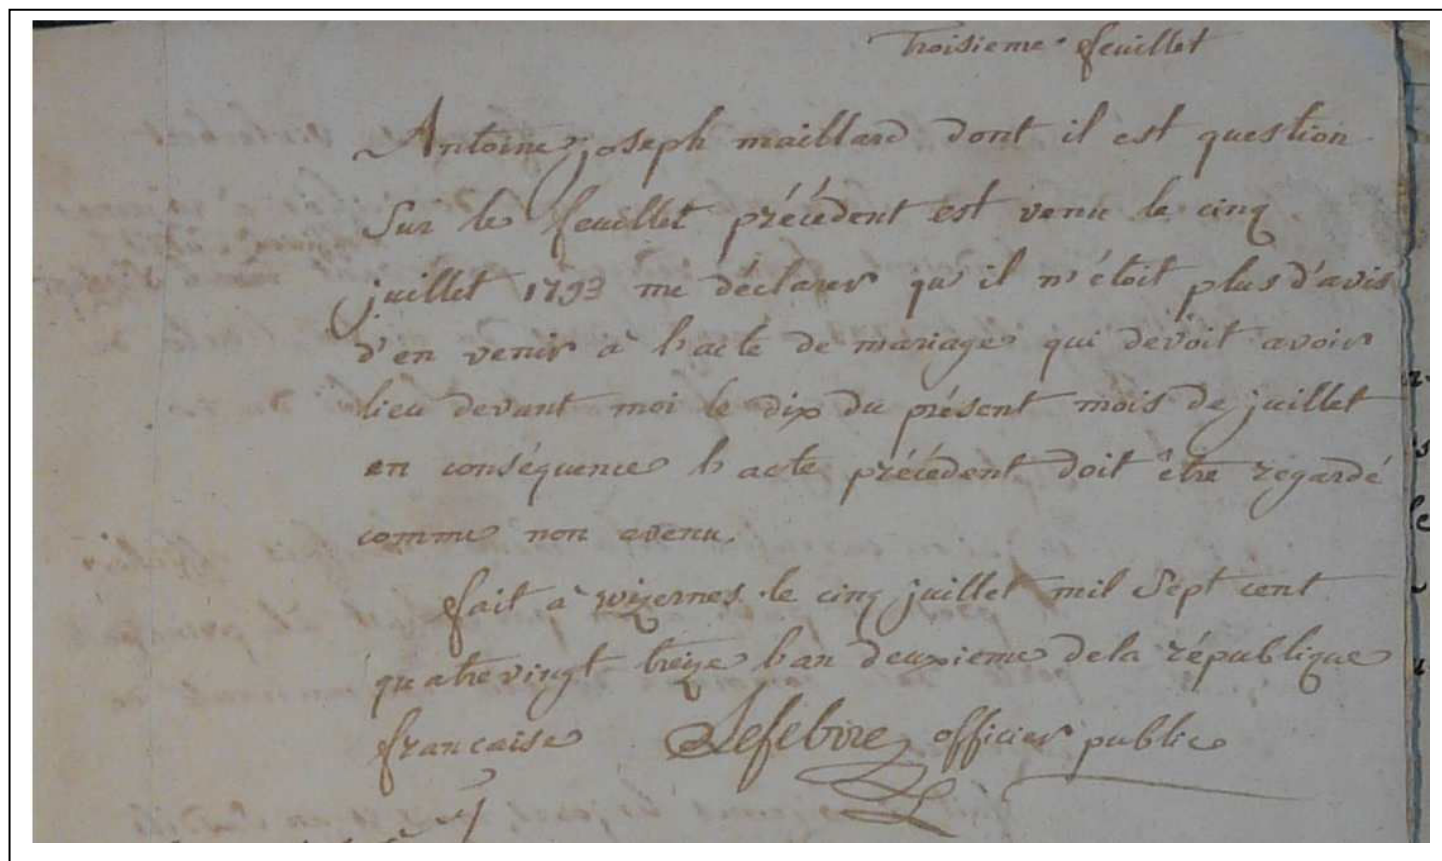 Troisieme feuillet
Antoine joseph maillard dont il est question
Sur le feuillet précédent est venu le cinq
juillet 1793 me déclarer qu'il n'étoit plus d'avis
d'en venir à l'acte de mariage qui devoit avoir
lieu devant moi le dix du présent mois de juillet
en conséquence l'acte précédent doit être regardé
comme non avenu.
fait à wizernes le cinq juillet mil Sept cent
quatrevingt treize l'an deuxieme de la république
française Lefebvre officier public